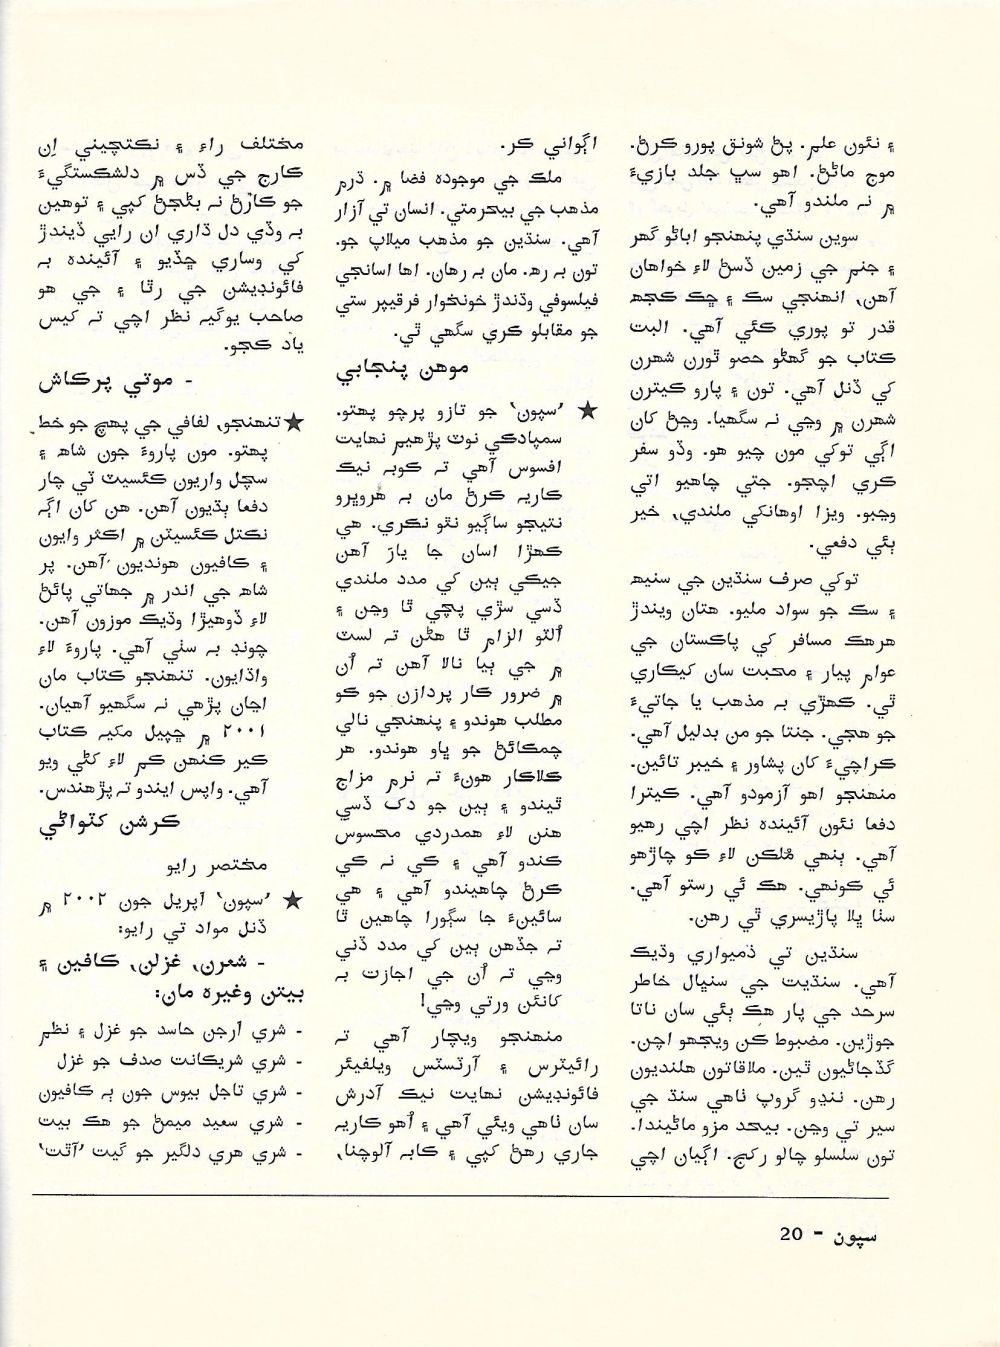 ۽ نئون علم. پڻ شونق پورو ڪرڻ.
موج ماڻڻ. اهو سڀ جلد بازيءَ
۾ نہ ملندو آهي.
سوين سنڌي پنهنجو اباڻو گهر
۽ جنم جي زمين ڏسڻ لاءِ خواهان
آهن، انهنجي سڪ ۽ ڇڪ ڪجھ
قدر تو پوري ڪئي آهي. البت
ڪتاب جو گهڻو حصو ٿورن شهرن
کي ڏنل آهي. تون ۽ پارو ڪيترن
شهرن ۾ وڃي نہ سگهيا. وڃڻ کان
اڳي توکي مون چيو هو. وڏو سفر
ڪري اچجو. جتي چاهيو اتي
وڃبو. ويزا اوهانکي ملندي، خير
ٻئي دفعي.
توکي صرف سنڌين جي سنيھ
۽ سڪ جو سواد مليو. هتان ويندڙ
هرهڪ مسافر کي پاڪستان جي
عوام پيار ۽ محبت سان کيڪاري
ٿي. ڪهڙي بہ مذهب يا جاتيءَ
جو هجي. جنتا جو من بدليل آهي.
ڪراچيءَ کان پشاور ۽ خيبر تائين.
منهنجو اهو آزمودو آهي. ڪيترا
دفعا نئون آئينده نظر اچي رهيو
آهي. ٻنهي مُلڪن لاءِ ڪو چاڙهو
ئي ڪونهي. هڪ ئي رستو آهي.
سٺا ڀلا پاڙيسري ٿي رهن.
سنڌين تي ذميواري وڌيڪ
آهي. سنڌيت جي سنڀال خاطر
سرحد جي پار هڪ ٻئي سان ناتا
جوڙين. مضبوط ڪن ويجهو اچن.
گڏجاڻيون ٿين. ملاقاتون هلنديون
رهن. ننڍو گروپ ٺاهي سنڌ جي
سير تي وڃن. بيحد مزو ماڻيندا.
تون سلسلو چالو رکج. اڳيان اچي
اڳواني ڪر.
ملڪ جي موجوده فضا ۾. ڌرم
مذهب جي بيحرمتي. انسان تي آزار
آهي. سنڌين جو مذهب ميلاپ جو.
تون بہ رھ. مان بہ رهان. اها اسانجي
فيلسوفي وڌندڙ خونخوار فرقيپر ستي
جو مقابلو ڪري سگهي ٿي.
موهن پنجابي
★ ’سپون‘ جو تازو پرچو پهتو.
سمپادڪي نوٽ پڙهيم نهايت
افسوس آهي تہ ڪوبہ نيڪ
ڪاريہ ڪرڻ مان بہ هروڀرو
نتيجو ساڳيو نٿو نڪري. هي
ڪهڙا اسان جا يار آهن
جيڪي ٻين کي مدد ملندي
ڏسي سڙي پڄي ٿا وڃن ۽
اُلٽو الزام ٿا هڻن تہ لسٽ
۾ جي ٻيا نالا آهن تہ اُن
۾ ضرور ڪار پردازن جو ڪو
مطلب هوندو ۽ پنهنجي نالي
چمڪائڻ جو ڀاو هوندو. هر
ڪلاڪار هونءَ تہ نرم مزاج
ٿيندو ۽ ٻين جو دک ڏسي
هنن لاءِ همدردي محسوس
ڪندو آهي ۽ ڪي نہ ڪي
ڪرڻ چاهيندو آهي ۽ هي
سائينءَ جا سڳورا چاهين ٿا
تہ جڏهن ٻين کي مدد ڏني
وڃي تہ اُن جي اجازت بہ
کانئن ورتي وڃي!
منهنجو ويچار آهي تہ
رائيٽرس ۽ آرٽسٽس ويلفيئر
فائونڊيشن نهايت نيڪ آدرش
سان ٺاهي ويئي آهي ۽ اُهو ڪاريہ
جاري رهڻ کپي ۽ ڪابہ آلوچنا،
مختلف راءِ ۽ نڪتچيني اِن
ڪارج جي ڏس ۾ دلشڪستگيءَ
جو ڪارڻ نہ بڻجڻ کپي ۽ توهين
بہ وڏي دل ڌاري ان رايي ڏيندڙ
کي وساري ڇڏيو ۽ آئينده بہ
فائونڊيشن جي رٿا ۽ جي هو
صاحب يوگيہ نظر اچي تہ کيس
ياد ڪجو.
- موتي پرڪاش
★ تنهنجو، لفافي جي پهچ جو خط
پهتو. مون پاروءَ جون شاھ ۽
سچل واريون ڪئسيٽ ٽي چار
دفعا ٻڌيون آهن. هن کان اڳہ
نڪتل ڪئسيٽن ۾ اڪثر وايون
۽ ڪافيون هونديون آهن. پر
شاھ جي اندر ۾ جهاتي پائڻ
لاءِ ڏوهيڙا وڌيڪ موزون آهن.
چونڊ بہ سٺي آهي. پاروءَ لاءِ
واڌايون. تنهنجو ڪتاب مان
اڃان پڙهي نہ سگهيو آهيان.
۲۰۰۱ ۾ ڇپيل مکيہ ڪتاب
ڪير ڪنهن ڪم لاءِ کڻي ويو
آهي. واپس ايندو تہ پڙهندس.
ڪرشن کٽواڻي
مختصر رايو
★ ’سپون‘ اپريل جون ۲۰۰۲ ۾
ڏنل مواد تي رايو:
- شعرن، غزلن، ڪافين ۽
بيتن وغيره مان:
- شري ارجن حاسد جو غزل ۽ نظم
- شري شريڪانت صدف جو غزل
- شري تاجل بيوس جون ٻہ ڪافيون
- شري سعيد ميمڻ جو هڪ بيت
- شري هري دلگير جو گيت ’اُٿت‘
سپون - 20